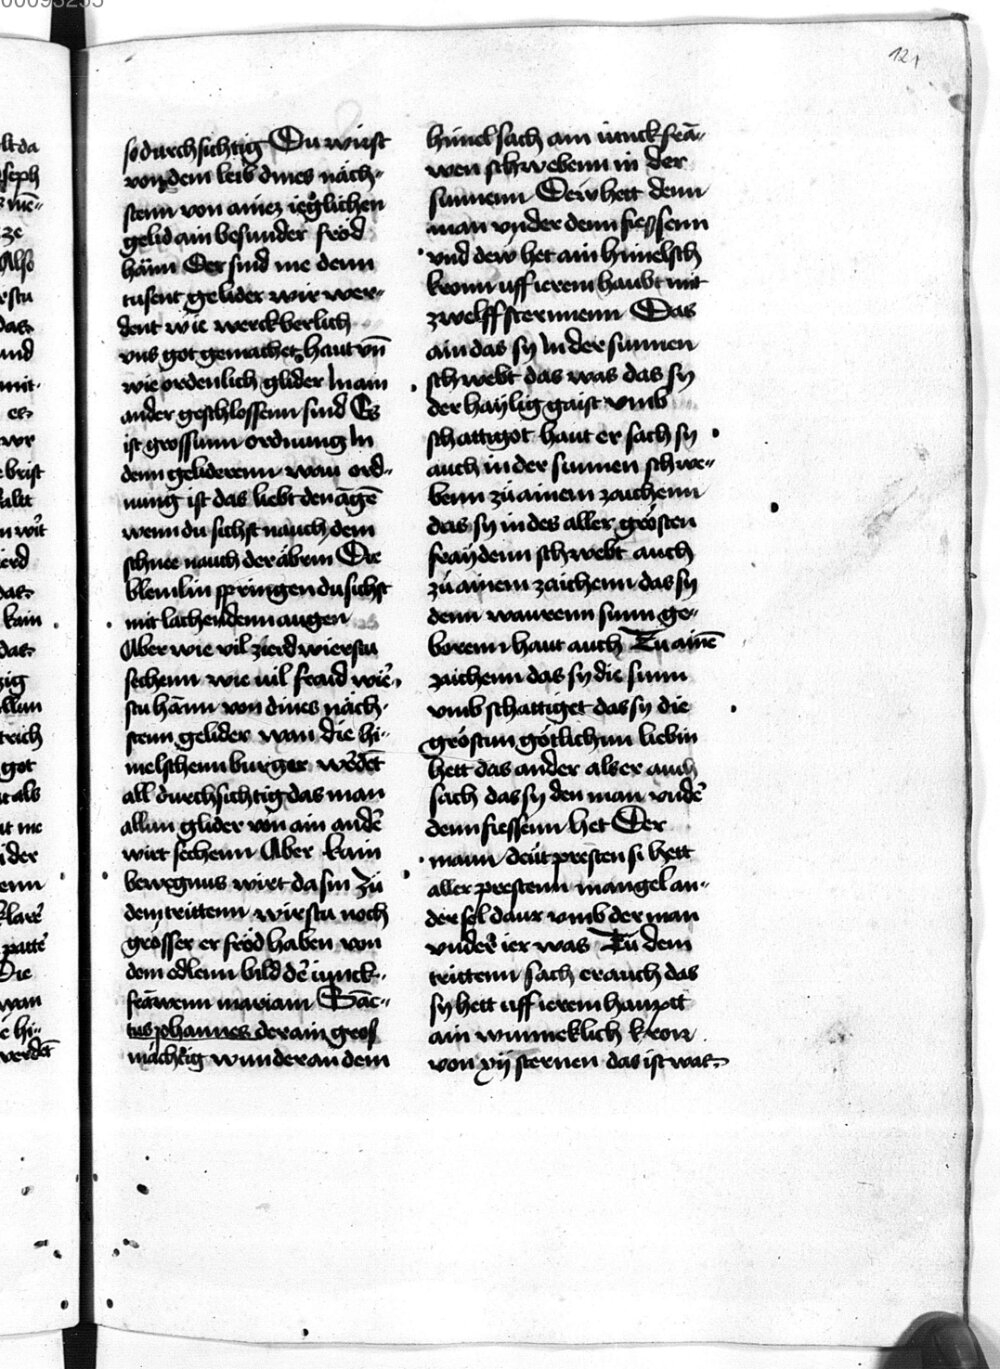 121
so durchsichtig Du wirst
von dem leib dines näch-
stenn von ainez ieglichen
gelid ain besunder fröd
hänn Der sind me denn
tusent gelider wir wer-
dent wie werckberlich
vns got gemachet haut vn̄
wie ordenlich glider In ain
ander geschlossenn sind Es
ist grossunn ordnung In
denn geliderenn wan ord-
nung ist das liebt den āgē
wenn du sichst nauch dem
schnee nauch der äbrin Die
blemlin springen du sichst
mit lachendenn augen
Aber wie vil zierd wierstu
sechenn wie uil fraid wier-
stu hānn von dines näch-
stenn gelider wan die hi-
melschenn burger wēdēt
all durchsichtig das man
allun glider von ain andē
wirt sechenn Aber kain
bewegnus wirt da sin Zů
dem trittenn wirstu noch
grösser er fröd haben von
dem edlenn bild dē iunck-
frāwenn mariam Sāc-
tus johannes der ain gros
mächtig wunder an dem
himel sach ain iunckfrā-
wen schwebenn in der
sunnenn Dew hett denn
man vnder denn fiessenn
vnd dew het ain himelsch
kronn uff ierem haubt mit
zwelff sternnenn Das
ain das sy In der sunnen
schwebt das was das sy
der haylig gaist vmb
schattigot haut er sach sy
auch in der sunnen schwe-
benn zů ainem zaichenn
das sy in des aller grösten
fraydenn schwebt auch
zů ainem zaichenn das sy
denn waurenn sunn ge-
borenn haut auch Zu ainē
zaichenn das sy die sunn
vmb schattiget das sy die
gröstun götlichun liebin
hett das ander als er auch
sach das sy den man vndē
denn fiessenn het Der
mann deüt presten si hett
aller prestenn mangel an-
der sel daur vmb der man
vnder ier was Zu dem
trittenn sach er auch das
sy hett uff ierem hauptt
ain wunneklich kron
von xij sternen das ist was